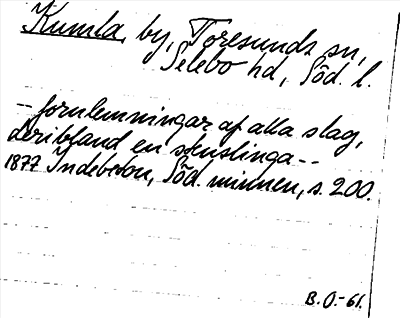 Kumla by, Toresunds sn,
Selebo hd, Söd. l.
- fornlemningar af alla slag,
deribland en stenslinga --
1877 Indebetou, Söd. minnen, s. 200.
B.O.-61.